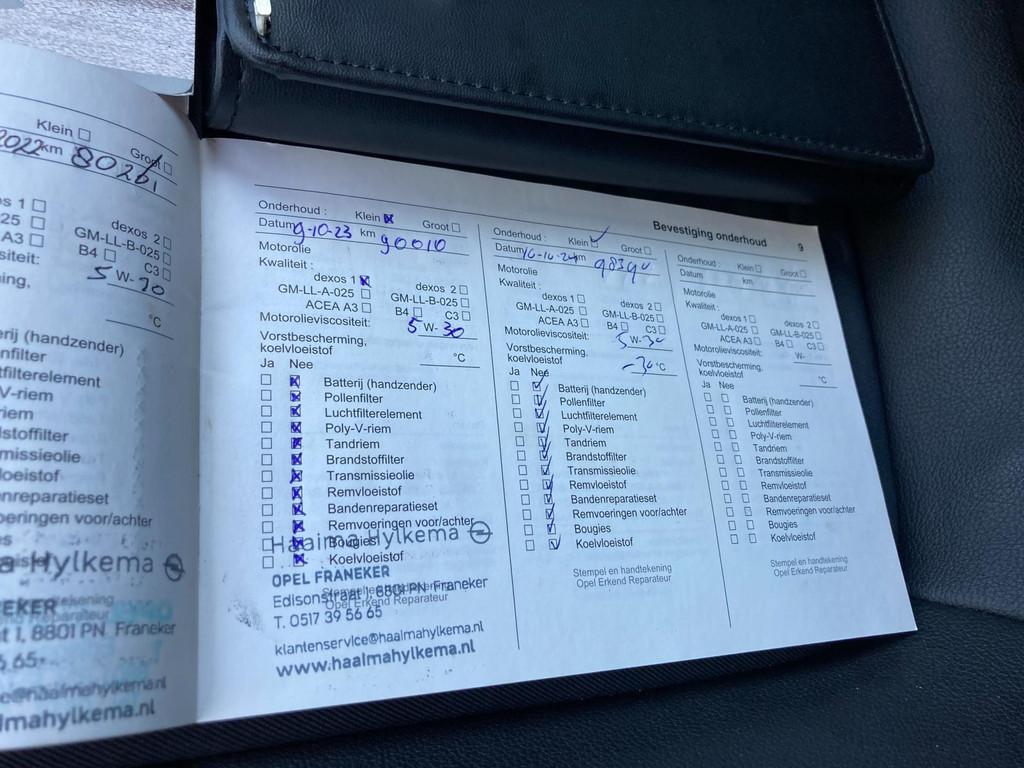 Klein ☐
Groot ☐
2022 km 80261
os 1 ☐
dexos 2 ☐
025 ☐
GM-LL-B-025 ☐
A3 ☐
B4 ☐ C3 ☐
siteit:
5 W-30
ing,
°C
erij (handzender)
nfilter
tfilterelement
V-riem
riem
dstoffilter
missieolie
loeistof
enreparatieset
oeringen voor/achter
a Hylkema
EKER
t 1, 8801 PN Franeker
5 65
lmahylkema.nl
Bevestiging onderhoud 9
Onderhoud : Klein ☒ Groot ☐
Datum 9-10-23 km 90010
Motorolie
Kwaliteit :
dexos 1 ☒ dexos 2 ☐
GM-LL-A-025 ☐ GM-LL-B-025 ☐
ACEA A3 ☐ B4 ☐ C3 ☐
Motorolieviscositeit: 5 W-30
Vorstbescherming,
koelvloeistof °C
Ja Nee
☐ ☒ Batterij (handzender)
☐ ☒ Pollenfilter
☐ ☒ Luchtfilterelement
☐ ☒ Poly-V-riem
☐ ☒ Tandriem
☐ ☒ Brandstoffilter
☐ ☒ Transmissieolie
☐ ☒ Remvloeistof
☐ ☒ Bandenreparatieset
☐ ☒ Remvoeringen voor/achter
☐ ☒ Bougies
☐ ☒ Koelvloeistof
Haaima Hylkema
OPEL FRANEKER
Stempel en handtekening
Edisonstraat 1, 8801 PN Franeker
Opel Erkend Reparateur
T. 0517 39 56 65
klantenservice@haaimahylkema.nl
www.haaimahylkema.nl
Onderhoud : Klein ☑ Groot ☐
Datum km
Motorolie
Kwaliteit :
dexos 1 ☐ dexos 2 ☐
GM-LL-A-025 ☐ GM-LL-B-025 ☐
ACEA A3 ☐ B4 ☐ C3 ☐
Motorolieviscositeit: 5 W-30
Vorstbescherming,
koelvloeistof -30 °C
Ja Nee
☐ ☑ Batterij (handzender)
☐ ☑ Pollenfilter
☐ ☑ Luchtfilterelement
☐ ☑ Poly-V-riem
☐ ☑ Tandriem
☐ ☑ Brandstoffilter
☐ ☑ Transmissieolie
☐ ☑ Remvloeistof
☐ ☑ Bandenreparatieset
☐ ☑ Remvoeringen voor/achter
☐ ☑ Bougies
☐ ☑ Koelvloeistof
Stempel en handtekening
Opel Erkend Reparateur
Onderhoud : Klein ☐ Groot ☐
Datum km
Motorolie
Kwaliteit :
dexos 1 ☐ dexos 2 ☐
GM-LL-A-025 ☐ GM-LL-B-025 ☐
ACEA A3 ☐ B4 ☐ C3 ☐
Motorolieviscositeit: W-
Vorstbescherming,
koelvloeistof °C
Ja Nee
☐ ☐ Batterij (handzender)
☐ ☐ Pollenfilter
☐ ☐ Luchtfilterelement
☐ ☐ Poly-V-riem
☐ ☐ Tandriem
☐ ☐ Brandstoffilter
☐ ☐ Transmissieolie
☐ ☐ Remvloeistof
☐ ☐ Bandenreparatieset
☐ ☐ Remvoeringen voor/achter
☐ ☐ Bougies
☐ ☐ Koelvloeistof
Stempel en handtekening
Opel Erkend Reparateur